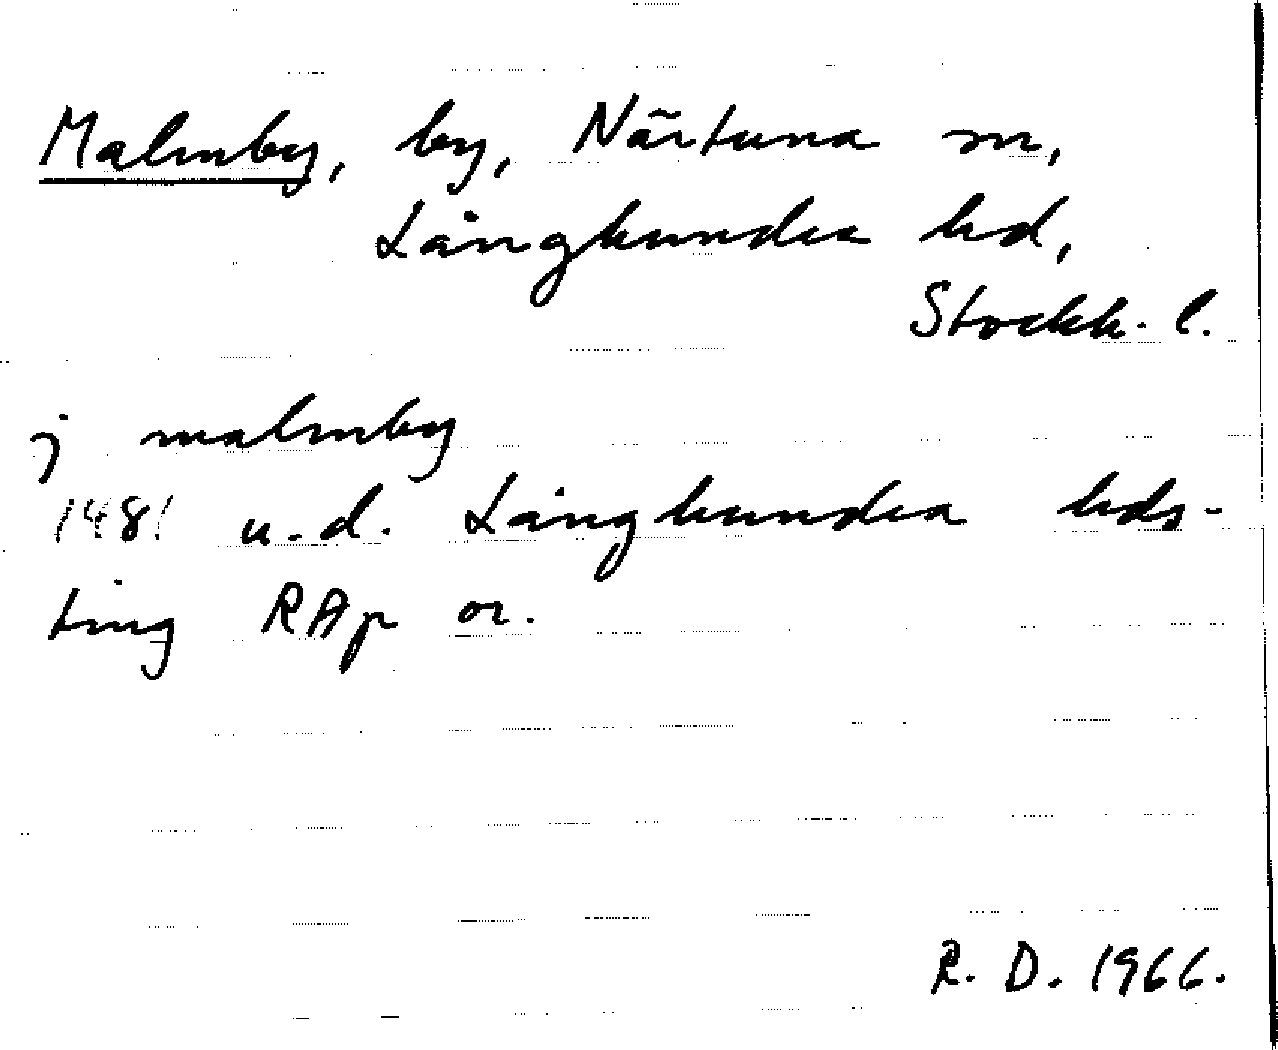 Malmby, by, Närtuna sn,
Långhundra hd,
Stockh. l.
j malmby
1481 u.d. Långhundra hds-
ting RAp or.
R. D. 1966.